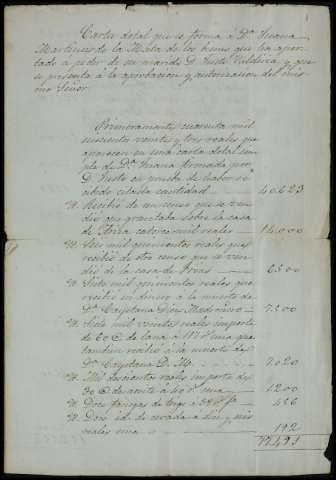 Carta dotal que se forma á D.ª Juana
Martinez de la Mata de los bienes que ha apor-
tado á poder de su marido D. Justo Valdera, y que
se presenta á la aprobacion y autorizacion del mis-
mo Señor.
Primeramente cuarenta mil
seiscientos veinte y tres reales que
aparecen en una carta dotal sim-
ple de D.ª Juana firmada por
D. Justo en prueba de haber re-
cibido citada cantidad 40.623
Yt. Recibió de un censo que se ven-
dió que gravitaba sobre la casa
de catorce mil reales 14.000
Yt. Seis mil quinientos reales que
recibió de otro censo que se ven-
dió de la casa de 6.500
Yt. Siete mil quinientos reales que
recibió en dinero á la muerte de
D.ª Cayetana Diez 7.500
Yt. Siete mil veinte reales importe
de 60 @ de lana á 117 r.s una que
tambien recibió á la muerte de
D.ª Cayetana D. M. 7.020
Yt. Mil doscientos reales importe de
30 @ de aceite á 40 r.s una 1.200
Yt. Doce fanegas de trigo á 38 r.s f.ª 456
Yt. Doce id. de cebada á diez y seis
reales una 192
77.491